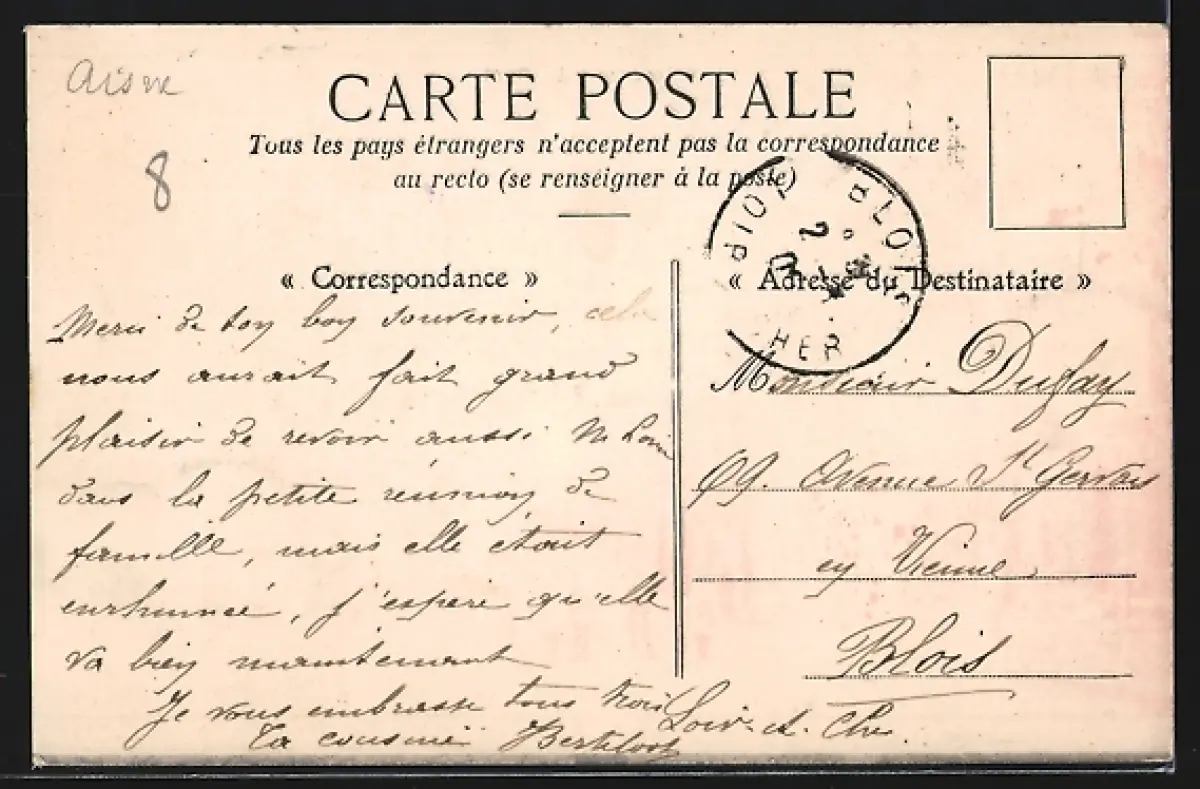 Aisne
8
CARTE POSTALE
Tous les pays étrangers n'acceptent pas la correspondance
au recto (se renseigner à la poste)
BLOIS
LOIR
CHER
« Correspondance »
Merci de ton bon souvenir, cela
nous aurait fait grand
plaisir de revoir aussi M
dans la petite réunion de
famille, mais elle était
enrhumée, j'espère qu'elle
va bien maintenant
Je vous embrasse tous trois
Ta cousine Berthelot
« Adresse du Destinataire »
Monsieur Dufay
69. Avenue St Gervais
en Vienne
Blois
Loir et Cher.